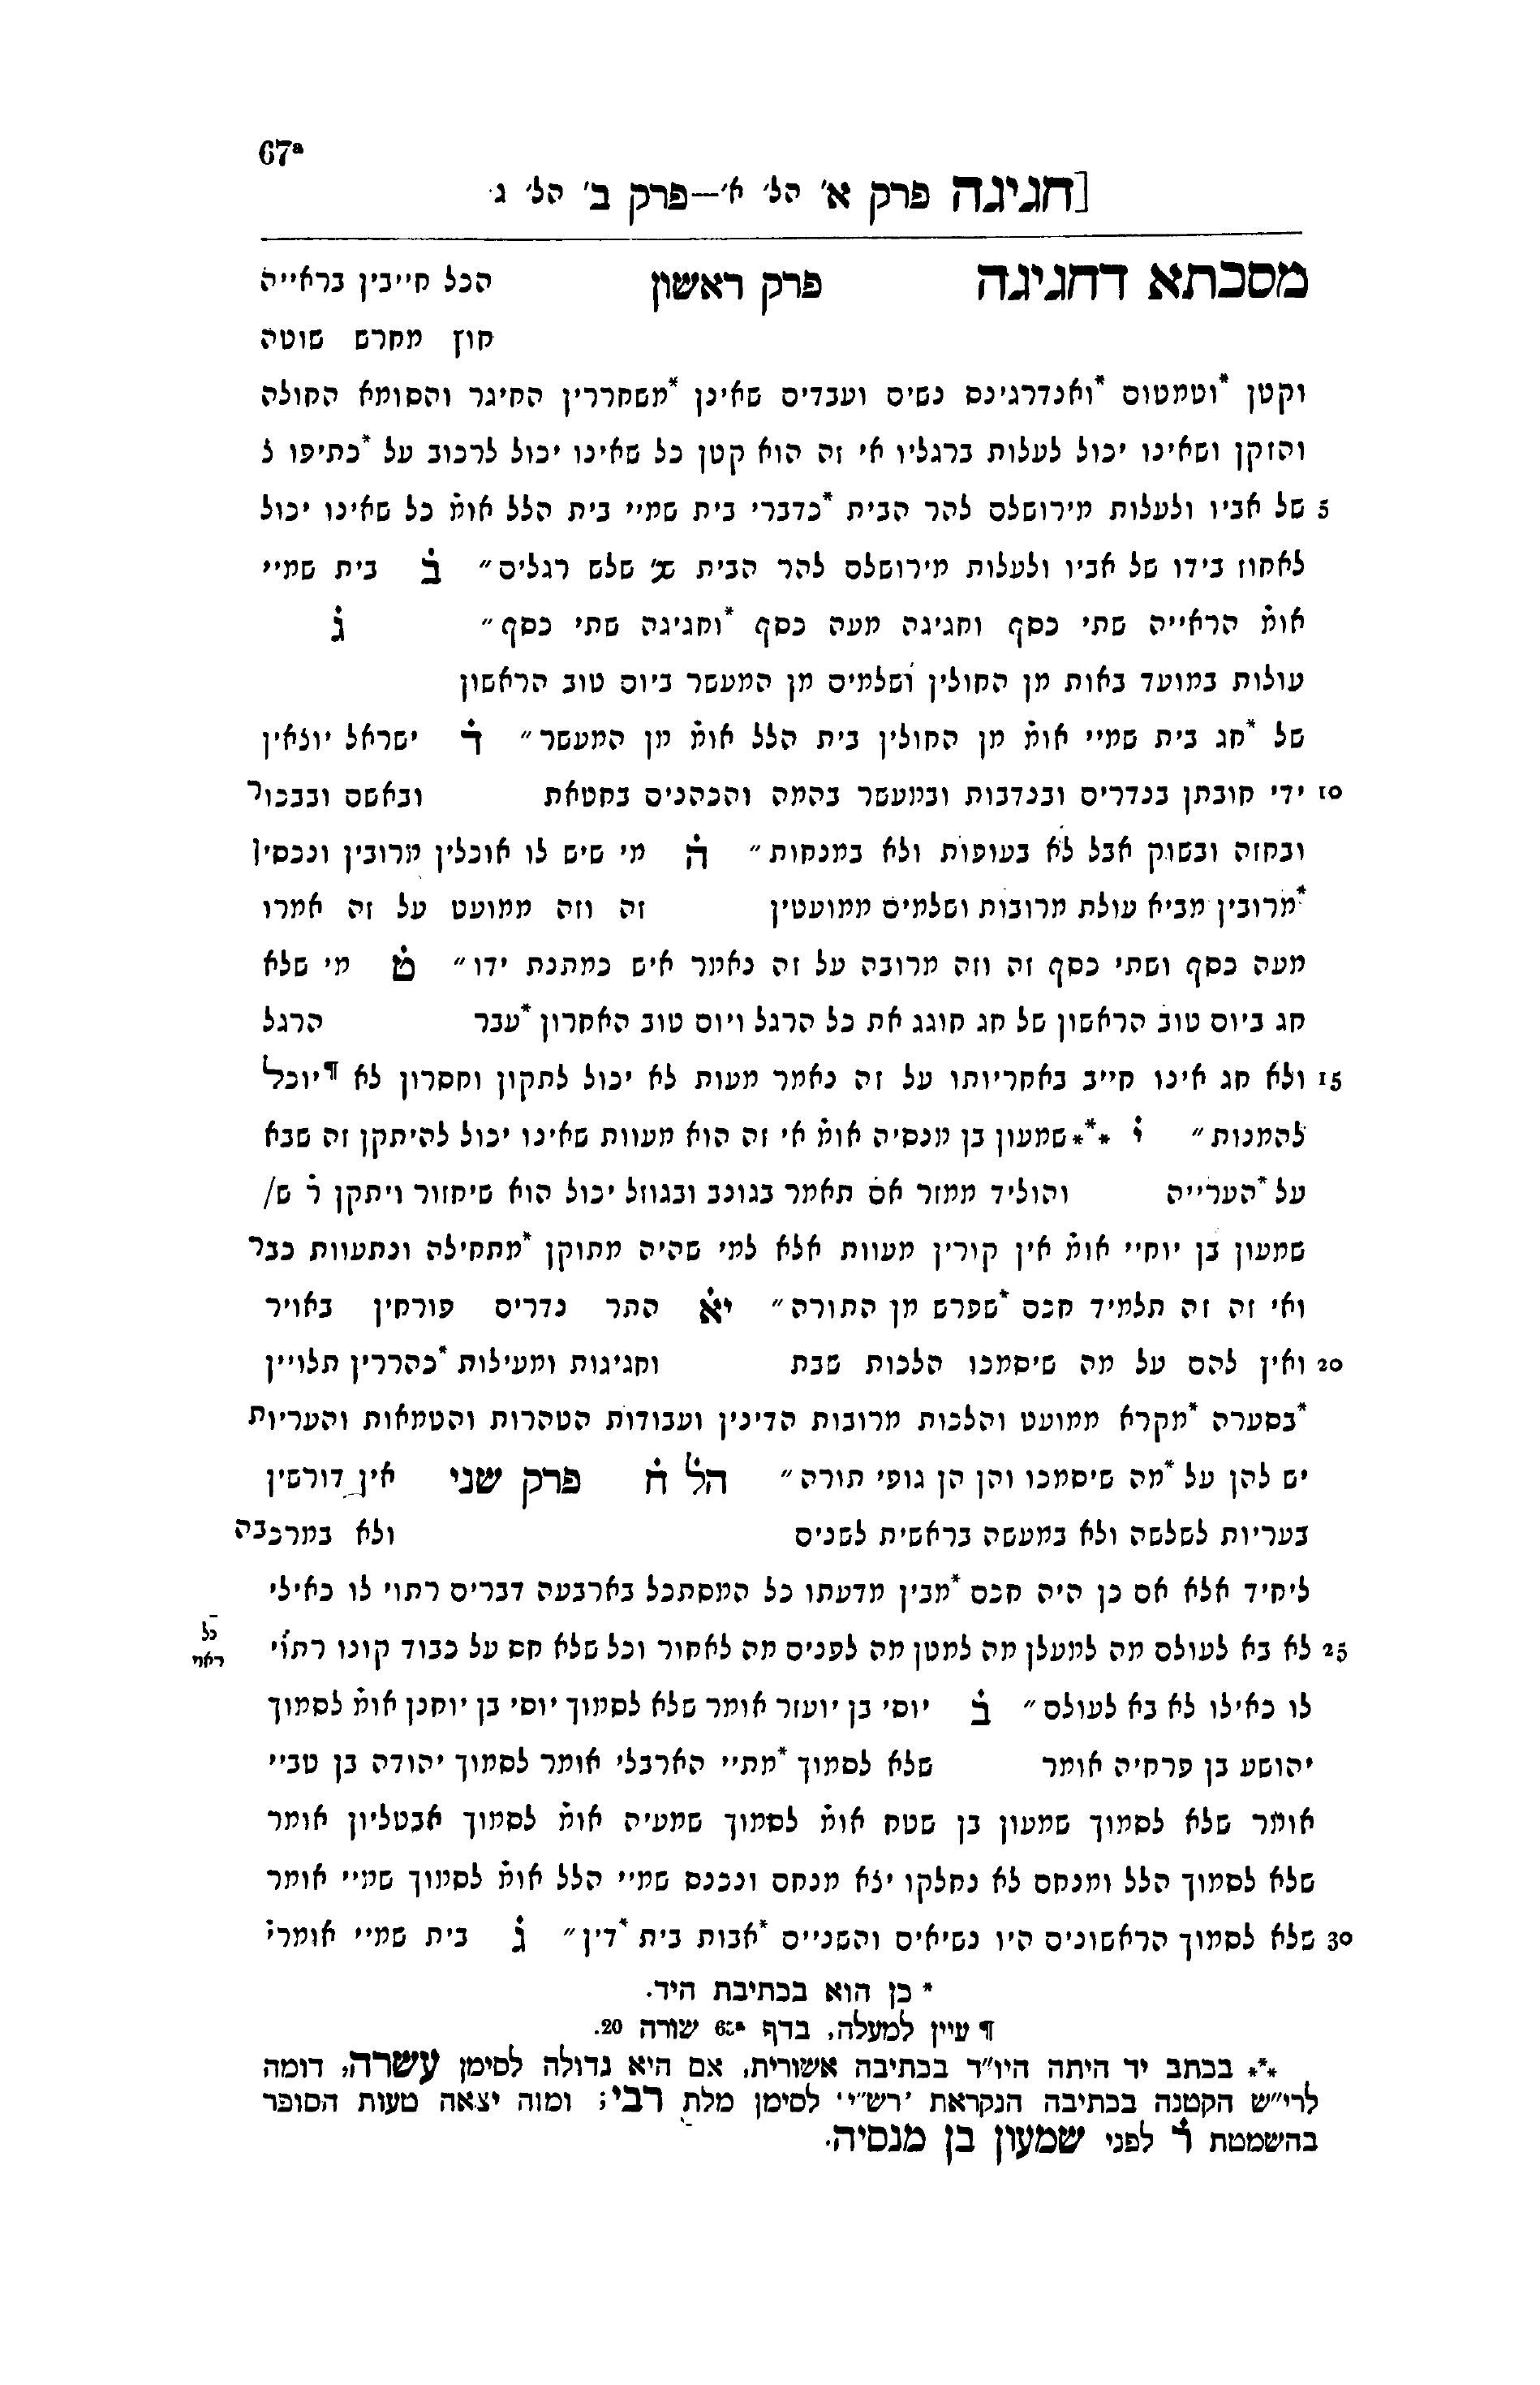 67ª
[חגיגה פרק א' הל' א'—פרק ב' הל' ג·
מסכתא דחגיגה פרק ראשון הכל חייבין בראייה
חוץ מחרש שוטה
וקטן *וטמטום *ואנדרגינס נשים ועבדים שאינן *משחררין החיגר והסומא החולה
והזקן ושאינו יכול לעלות ברגליו אי זה הוא קטן כל שאינו יכול לרכוב על *כתיפו ל
5 של אביו ולעלות מירושלם להר הבית *כדברי בית שמיי בית הלל אומ̇ כל שאינו יכול
לאחוז בידו של אביו ולעלות מירושלם להר הבית שנ' שלש רגלים״ ב̇ בית שמיי
אומ̇ הראייה שתי כסף וחגיגה מעה כסף *וחגיגה שתי כסף״ ג̇
עולות במועד באות מן החולין ושלמים מן המעשר ביום טוב הראשון
של *חג בית שמיי אומ̇ מן החולין בית הלל אומ̇ מן המעשר״ ד̇ ישראל יוצאין
10 ידי חובתן בנדרים ובנדבות ובמעשר בהמה והכהנים בחטאת ובאשם ובבכור
ובחזה ובשוק אבל לא בעופות ולא במנחות״ ה̇ מי שיש לו אוכלין מרובין ונכסין
*מרובין מביא עולת מרובות ושלמים ממועטין זה וזה ממועט על זה אמרו
מעה כסף ושתי כסף זה וזה מרובה על זה נאמר איש כמתנת ידו״ ט̇ מי שלא
חג ביום טוב הראשון של חג חוגג את כל הרגל ויום טוב האחרון *עבר הרגל
15 ולא חג אינו חייב באחריותו על זה נאמר מעות לא יכול לתקון וחסרון לא ¶יוכל
להמנות״ י̇ ⁂שמעון בן מנסיה אומ̇ אי זה הוא מעוות שאינו יכול להיתקן זה שבא
על *הערייה והוליד ממזר אם תאמר בגונב ובגוזל יכול הוא שיחזור ויתקן ר̇ ש/
שמעון בן יוחיי אומ̇ אין קורין מעוות אלא למי שהיה מתוקן *מתחילה ונתעוות כבר
ואי זה זה תלמיד חכם *שפרש מן התורה״ יא̇ התר נדרים פורחין באויר
20 ואין להם על מה שיסמכו הלכות שבת וחגיגות ומעילות *כהררין תלויין
*בסערה *מקרא ממועט והלכות מרובות הדינין ועבודות הטהרות והטמאות והעריות
יש להן על *מה שיסמכו והן הן גופי תורה״ הל̇ ח̇ פרק שני אין דורשין
בעריות לשלשה ולא במעשה בראשית לשנים ולא במרכבה
ליחיד אלא אם כן היה חכם *מבין מדעתו כל המסתכל בארבעה דברים רתוי לו כאילי
25 לא בא לעולם מה למעלן מה למטן מה לפנים מה לאחור וכל שלא חס על כבוד קונו רתוי
לו כאילו לא בא לעולם״ ב̇ יוסי בן יועזר אומר שלא לסמוך יוסי בן יוחנן אומ̇ לסמוך
יהושע בן פרחיה אומר שלא לסמוך *מתיי הארבלי אומר לסמוך יהודה בן טביי
אומר שלא לסמוך שמעון בן שטח אומ̇ לסמוך שמעיה אומ̇ לסמוך אבטליון אומר
שלא לסמוך הלל ומנחם לא נחלקו יצא מנחם ונכנס שמיי הלל אומ̇ לסמוך שמיי אומר
30 שלא לסמוך הראשונים היו נשיאים והשניים *אבות בית *דין״ ג̇ בית שמיי אומרי̇
* כן הוא בכתיבת היד.
¶ עיין למעלה, בדף שורה 20.
⁂ בכתב יד היתה היו״ד בכתיבה אשורית, אם היא גדולה לסימן עשרה, דומה
לרי״ש הקטנה בכתיבה הנקראת 'רש״י' לסימן מלת רבי; ומזה יצאה טעות הסופר
בהשמטת ר̇ לפני שמעון בן מנסיה.